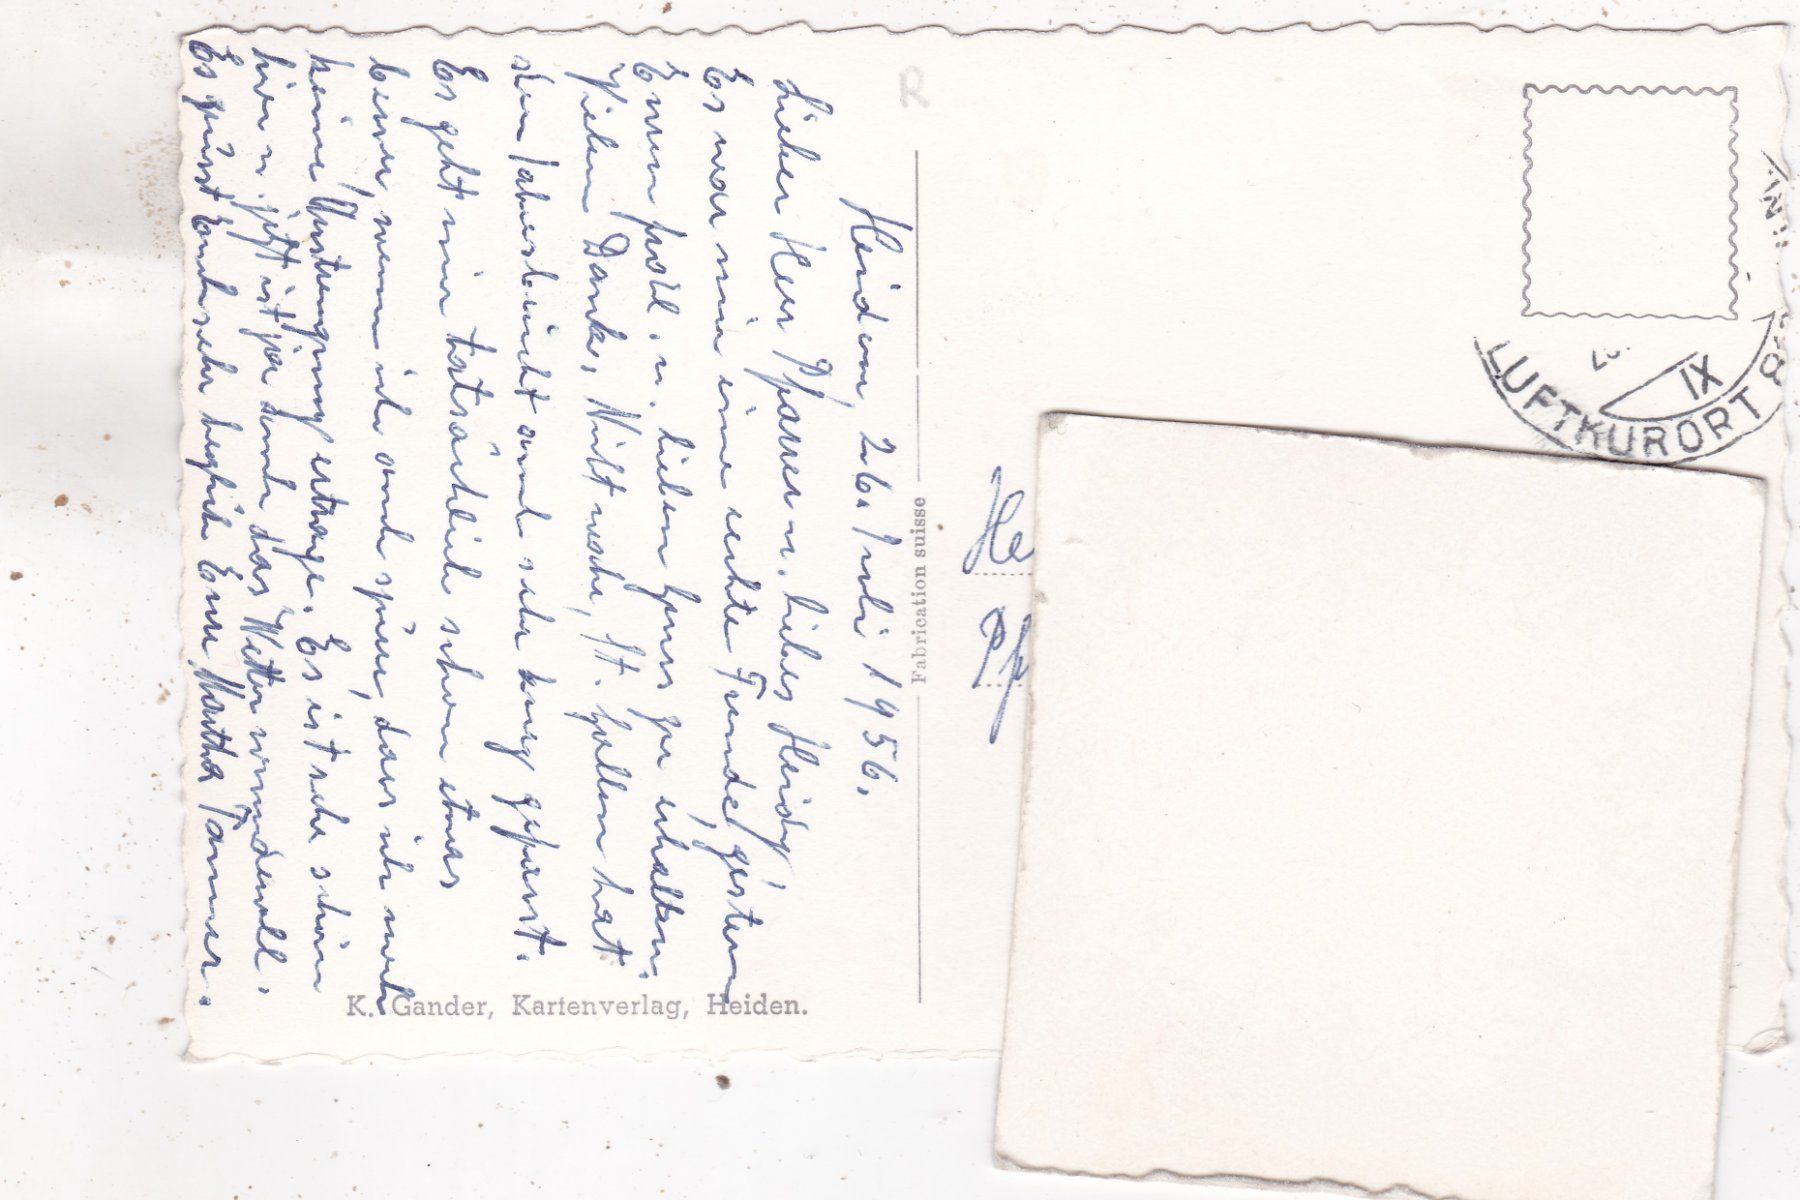 Heiden, 26. Juli 1956.
Lieber Herr Pfarrer u. liebes Heidy!
Es war mir eine echte Freude, gestern
Euren frohl. u. lieben Gruss zu erhalten.
Vielen Dank. Nicht wahr, St. Gallen hat
den Jahresbericht auch sehr kurz gefasst.
Es geht mir tatsächlich schon etwas
besser, wenn ich auch spüre, dass ich noch
keine Anstrengung ertrage. Es ist sehr schön
hier u. jetzt ist ja auch das Wetter wundervoll.
Es grüsst Euch sehr herzlich Eure Martha Tanner.
K. Gander, Kartenverlag, Heiden.
Fabrication suisse
He
Pf
R
IX
LUFTKURORT